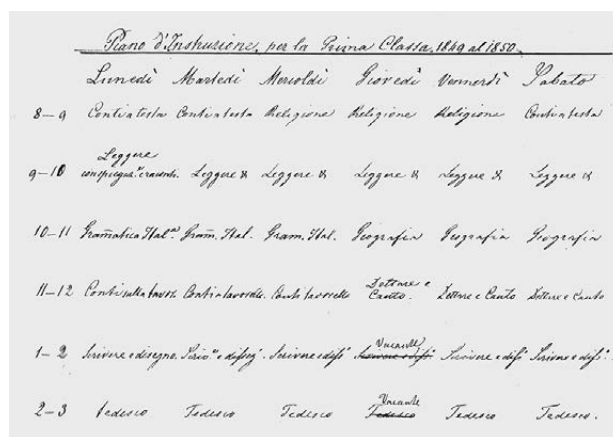 Piano d'Instruzione, per la Prima Classa. 1849 al 1850.
Lunedì Martedì Mercoldì Giovedì Vennerdì Sabato
8–9 Conti a testa Conti a testa Religione Religione Religione Conti a testa
Leggere
9–10 Leggere & Leggere & Leggere & Leggere & Leggere &
10–11 Gramatica Ital.ª Gram. Ital. Gram. Ital. Geografia Geografia Geografia
Dettare e
11–12 Conti sulla tavol. Conti a tavorelle Conti tavorelle Canto. Dettare e Canto Dettare e Canto
Vacante
1–2 Scrivere e disegno. Scriv.e e disseg. Scrivere e diss.o Scrivere e diss.o Scrivere e diss.o Scrivere e diss.o
Vacante
2–3 Tedesco Tedesco Tedesco Tedesco Tedesco Tedesco.